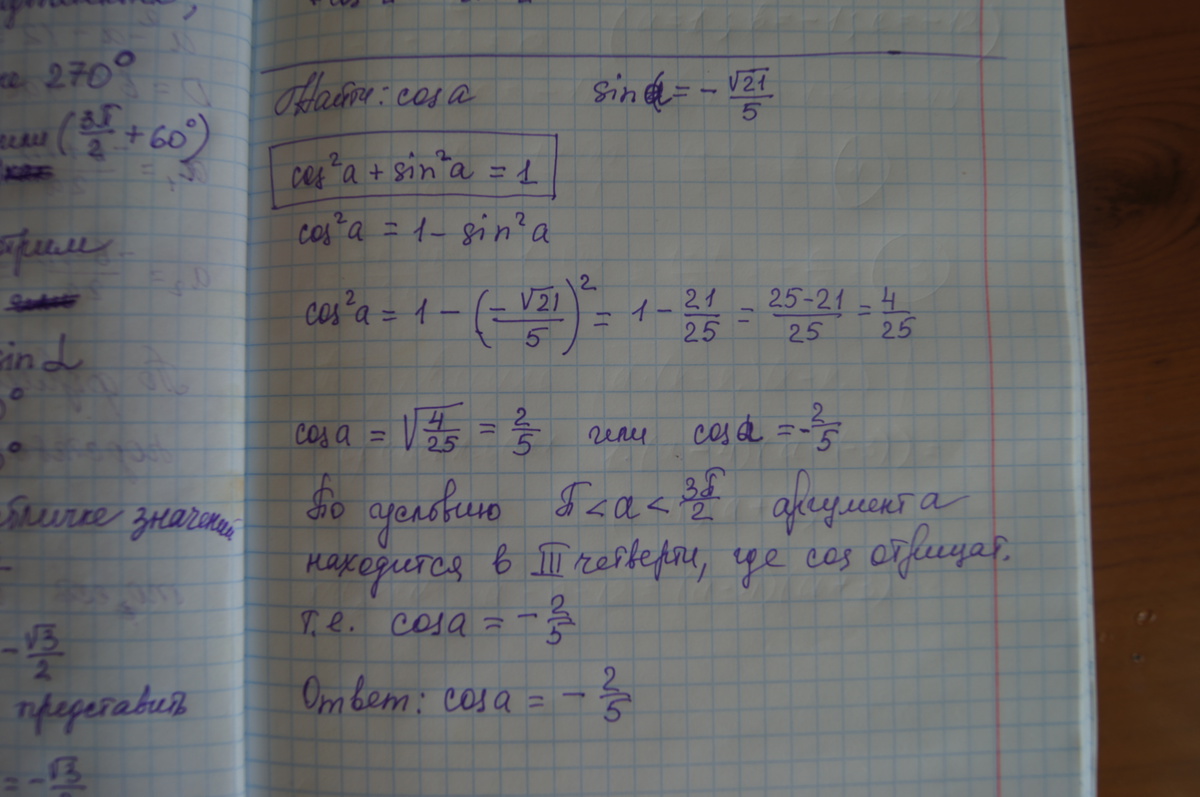 270°
или (3π/2 + 60°)
sin α
табличке значений
-√3/2
представить
= -√3/2
Найти: cos a sin a = -√21/5
cos²a + sin²a = 1
cos²a = 1 - sin²a
cos²a = 1 - (-√21/5)² = 1 - 21/25 = 25-21/25 = 4/25
cos a = √4/25 = 2/5 или cos a = -2/5
По условию π < a < 3π/2 аргумент a
находится в III четверти, где cos отрицат.
т.е. cos a = -2/5
Ответ: cos a = -2/5